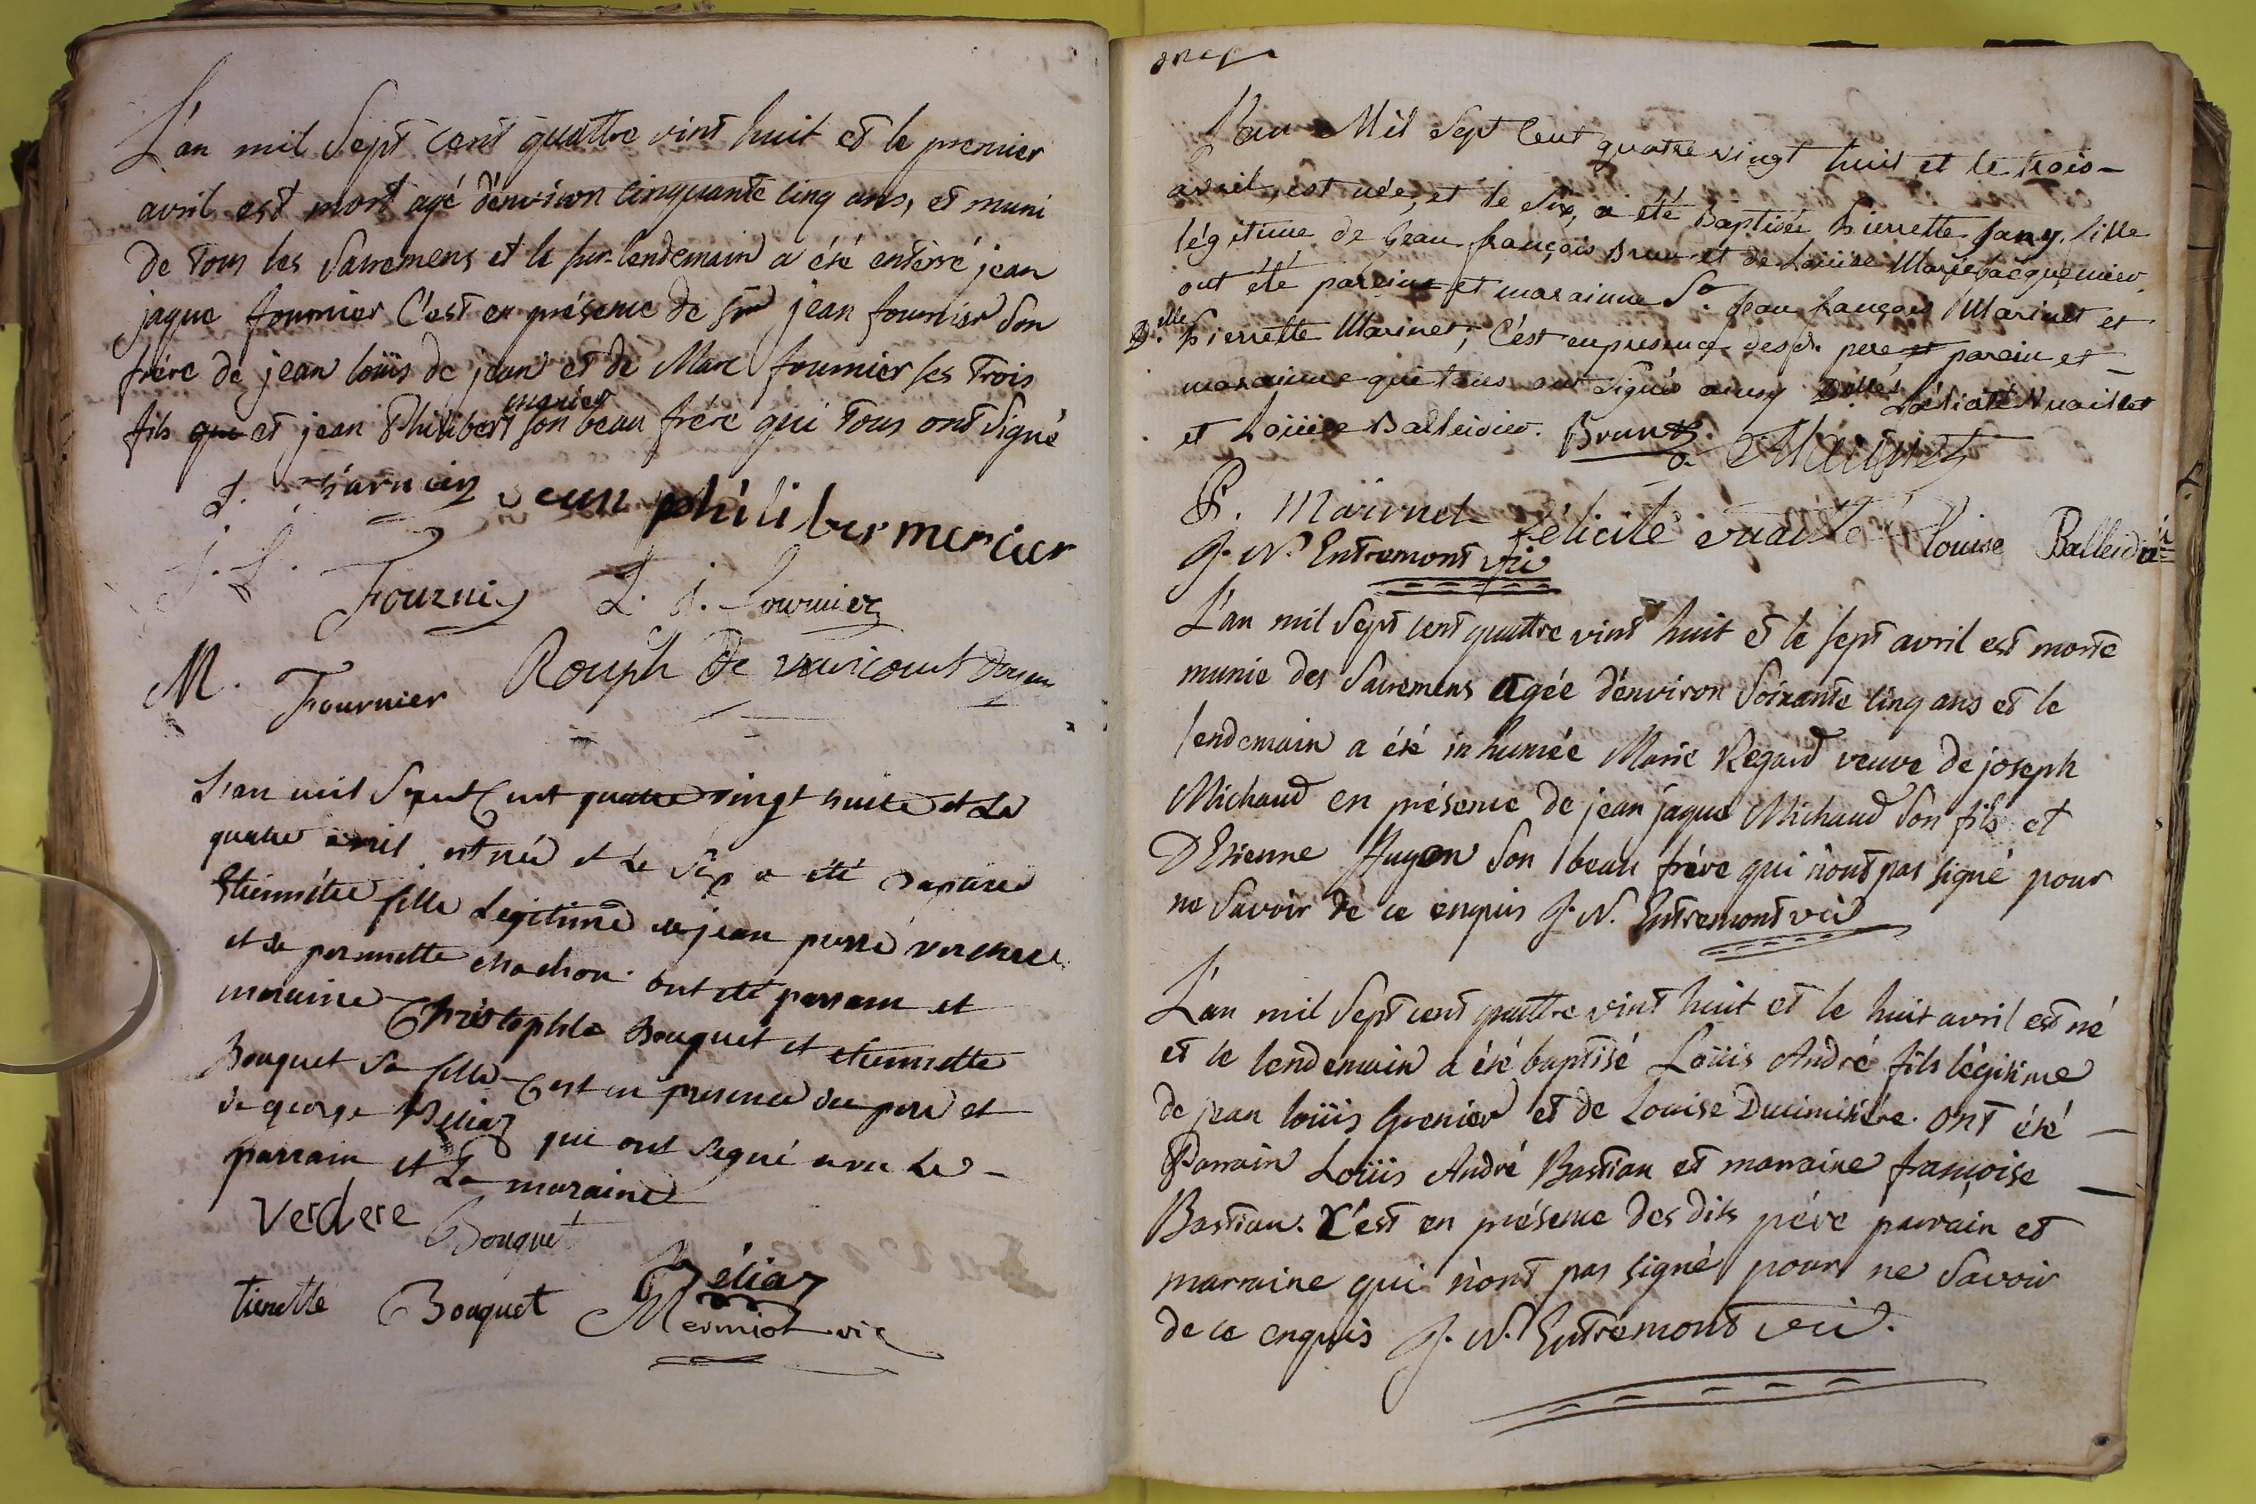 L'an mil Sept cent quattre vint huit et le premier
avril est mort agé d'environ cinquante cinq ans, et muni
de tous les Sacremens et le sur-lendemain a été enterré jean
jaque fournier C'est en présence de Sr jean fournier son
frére de jean loüis de jean et de Marc fournier ses trois
mercier
fils que et jean Philibert son beau frére qui tous ont signé
J. jean philiber mercier
J. L. Fournier L. J. fournier
M. Fournier Rouph de varicourt doyen
L'an mil Sept Cent quatre vingt huite et Le
quatre avril est née et Le Six a été Baptisée
Etiennétte fille Legitime de jean pierre verdere
et de pernette chachon. ont eté parrain et
maraine Christophle Bouquet et etiennette
Bouquet Sa fille C'est en presence du pere et
de george Béliaz qui ont signé avec Le
parrain et La maraine
verdere Bouquet
tienette Bouquet Béliaz
Mermiot vic
onze
L'an Mil Sept Cent quatre vingt huit et le trois
avril, est née, et le Six, a été Baptisée Pierrette fany, fille
légitime de Jean françois Brun et de Loüise Marie Jacquemier.
ont été parein et marainne Sr. Jean françois Marinet et
Dlle. Pierrette Marinet; C'est en presence desd. pere et parein et
marainne qui tous ont Signés aussy Delles. Félicité Vuaillet
et Loüise Balleidier. Brun Marinet
P. Marinet félicité vuaillet louise Balleidier
J. N. Entremont vic
L'an mil Sept cent quattre vint huit et le sept avril est morte
munie des Sacremens agée d'environ Soixante cinq ans et le
lendemain a été inhumée Marie Regard veuve de joseph
Michaud en présence de jean jaque Michaud son fils et
D'Etienne Hugon son beau frére qui n'ont pas signé pour
ne savoir de ce enquis J. N. Entremont vic
L'an mil Sept cent quattre vint huit et le huit avril est né
et le lendemain a été baptisé Loüis André fils légitime
de jean loüis Grenier et de Louise Ducimitiére. ont été
Parrain Loüis André Bastian et marraine françoise
Bastian. C'est en présence des dits pére parrain et
marraine qui n'ont pas signé pour ne savoir
de ce enquis J. N. Entremont vic.